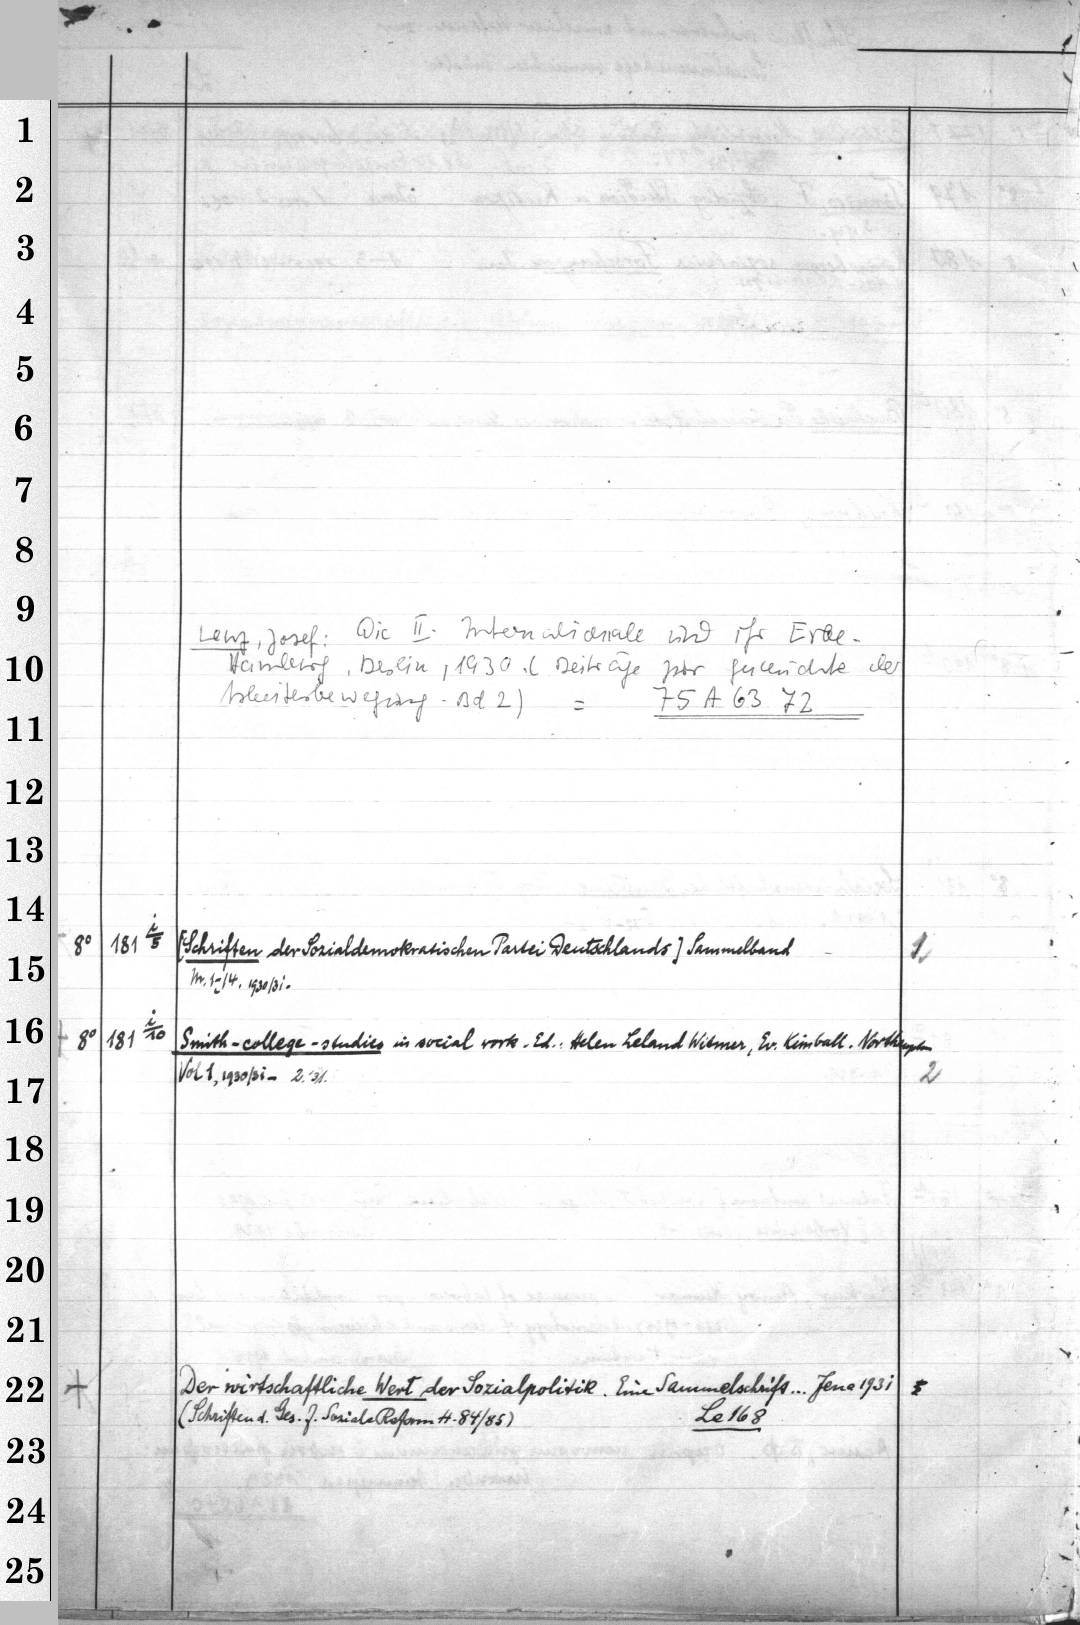 1
2
3
4
5
6
7
8
9
Lenz, Josef: Die II. Internationale und ihr Erbe.
10 Hamburg, Berlin, 1930. (Beiträge zur Geschichte der
Arbeiterbewegung. Bd 2) = 75 A 63 72
11
12
13
14
8° 181 i/5 [Schriften der Sozialdemokratischen Partei Deutschlands] Sammelband 1
15 Nr. 1-14. 1930/31.
16 8° 181 i/10 Smith-college-studies in social work. Ed.: Helen Leland Witmer, Ev. Kimball. Northampton
17 Vol 1, 1930/31- 2.'31. 2
18
19
20
21
22 + Der wirtschaftliche Wert der Sozialpolitik. Eine Sammelschrift... Jena 1931
(Schriften d. Ges. f. Soziale Reform H. 84/85) Le 168
23
24
25